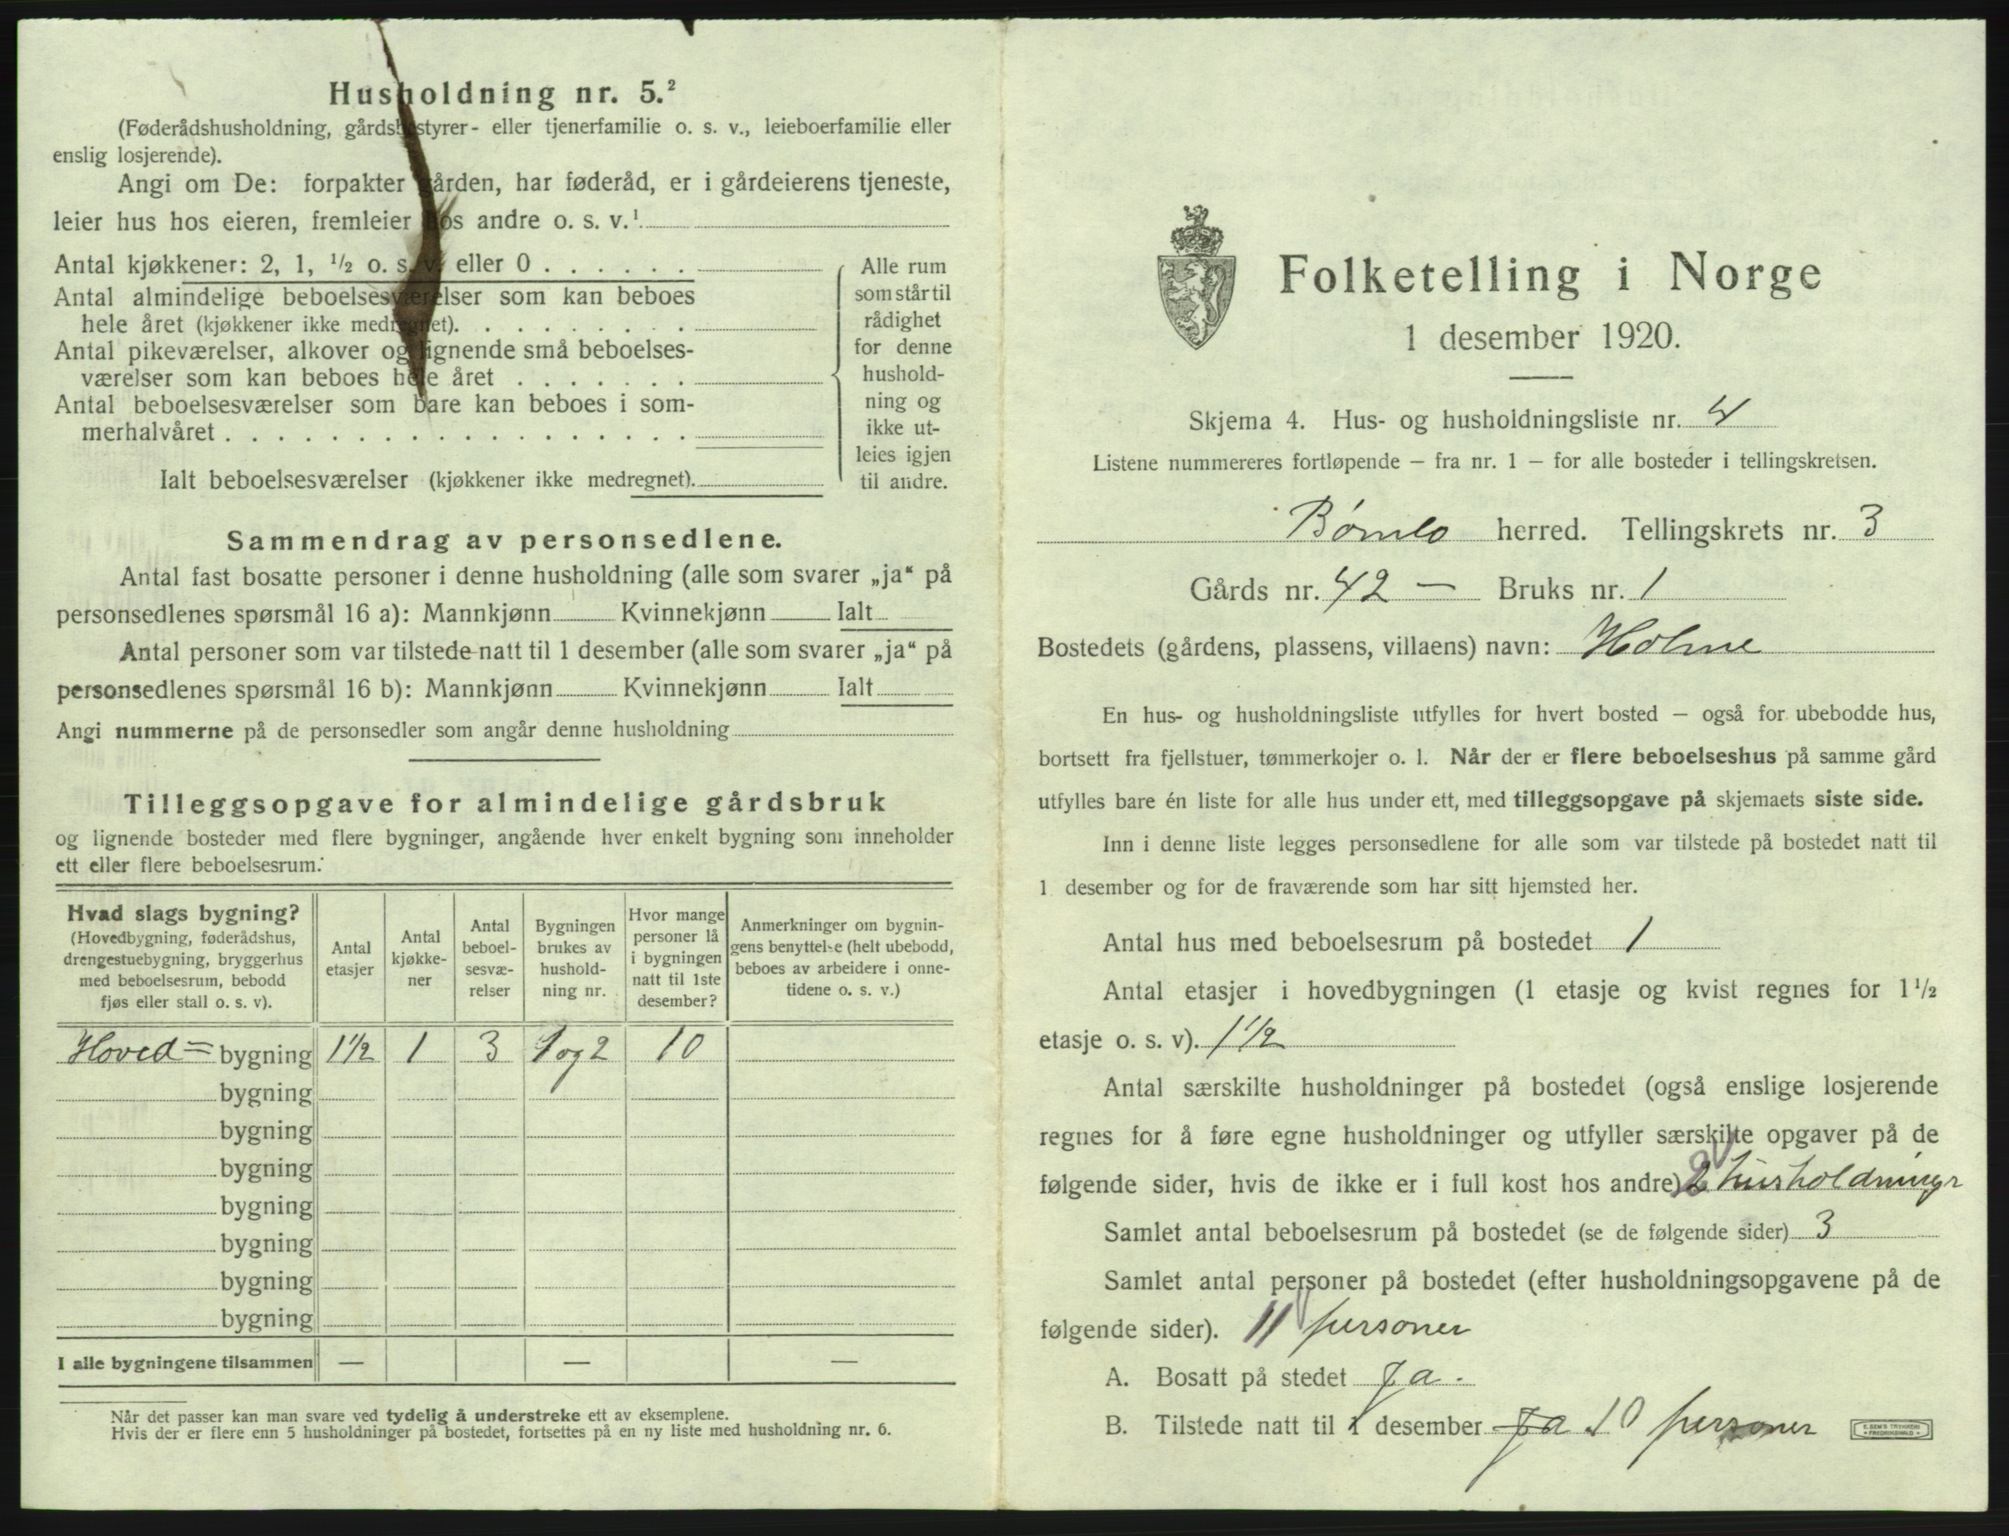 Husholdning nr. 5.²
(Føderådshusholdning, gårdsbestyrer- eller tjenerfamilie o. s. v., leieboerfamilie eller
enslig losjerende).
Angi om De: forpakter gården, har føderåd, er i gårdeierens tjeneste,
leier hus hos eieren, fremleier hos andre o. s. v.¹
Antal kjøkkener: 2, 1, ½ o. s. v. eller 0 . . . . . .
Antal almindelige beboelsesværelser som kan beboes
hele året (kjøkkener ikke medregnet). . . . . . . . .
Antal pikeværelser, alkover og lignende små beboelses-
værelser som kan beboes hele året . . . . . . .
Antal beboelsesværelser som bare kan beboes i som-
merhalvåret . . . . . . . . . . . . . . . . . .
Ialt beboelsesværelser (kjøkkener ikke medregnet).
Alle rum
som står til
rådighet
for denne
hushold-
ning og
ikke ut-
leies igjen
til andre.
Sammendrag av personsedlene.
Antal fast bosatte personer i denne husholdning (alle som svarer „ja“ på
personsedlenes spørsmål 16 a): Mannkjønn Kvinnekjønn Ialt
Antal personer som var tilstede natt til 1 desember (alle som svarer „ja“ på
personsedlenes spørsmål 16 b): Mannkjønn Kvinnekjønn Ialt
Angi nummerne på de personsedler som angår denne husholdning
Tilleggsopgave for almindelige gårdsbruk
og lignende bosteder med flere bygninger, angående hver enkelt bygning som inneholder
ett eller flere beboelsesrum.
Hvad slags bygning?
(Hovedbygning, føderådshus,
drengestuebygning, bryggerhus
med beboelsesrum, bebodd
fjøs eller stall o. s. v).
Antal
etasjer
Antal
kjøkke-
ner
Antal
beboel-
sesvæ-
relser
Bygningen
brukes av
hushold-
ning nr.
Hvor mange
personer lå
i bygningen
natt til 1ste
desember?
Anmerkninger om bygnin-
gens benyttelse (helt ubebodd,
beboes av arbeidere i onne-
tidene o. s. v.)
Hoved= bygning 1½ 1 3 1 og 2 10
bygning
bygning
bygning
bygning
bygning
bygning
bygning
I alle bygningene tilsammen — — —
Når det passer kan man svare ved tydelig å understreke ett av eksemplene.
Hvis der er flere enn 5 husholdninger på bostedet, fortsettes på en ny liste med husholdning nr. 6.
Folketelling i Norge
1 desember 1920.
Skjema 4. Hus- og husholdningsliste nr. 4
Listene nummereres fortløpende — fra nr. 1 — for alle bosteder i tellingskretsen.
Bømlo herred. Tellingskrets nr. 3
Gårds nr. 42 — Bruks nr. 1
Bostedets (gårdens, plassens, villaens) navn: Holme
En hus- og husholdningsliste utfylles for hvert bosted — også for ubebodde hus,
bortsett fra fjellstuer, tømmerkojer o. l. Når der er flere beboelseshus på samme gård
utfylles bare én liste for alle hus under ett, med tilleggsopgave på skjemaets siste side.
Inn i denne liste legges personsedlene for alle som var tilstede på bostedet natt til
1 desember og for de fraværende som har sitt hjemsted her.
Antal hus med beboelsesrum på bostedet 1
Antal etasjer i hovedbygningen (1 etasje og kvist regnes for 1½
etasje o. s. v). 1½
Antal særskilte husholdninger på bostedet (også enslige losjerende
regnes for å føre egne husholdninger og utfyller særskilte opgaver på de
følgende sider, hvis de ikke er i full kost hos andre) 2 husholdninger
Samlet antal beboelsesrum på bostedet (se de følgende sider) 3
Samlet antal personer på bostedet (efter husholdningsopgavene på de
følgende sider). 11 personer
A. Bosatt på stedet ja.
B. Tilstede natt til 1 desember ja 10 personer